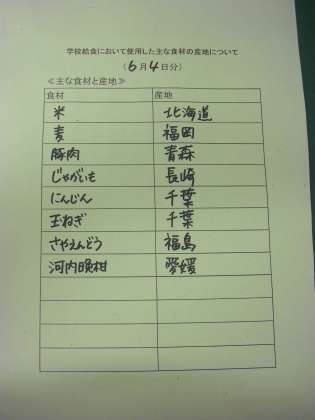 学校給食において使用した主な食材の産地について
(6月4日分)
≪主な食材と産地≫
食材 産地
米 北海道
麦 福岡
豚肉 青森
じゃがいも 長崎
にんじん 千葉
玉ねぎ 千葉
さやえんどう 福島
河内晩柑 愛媛